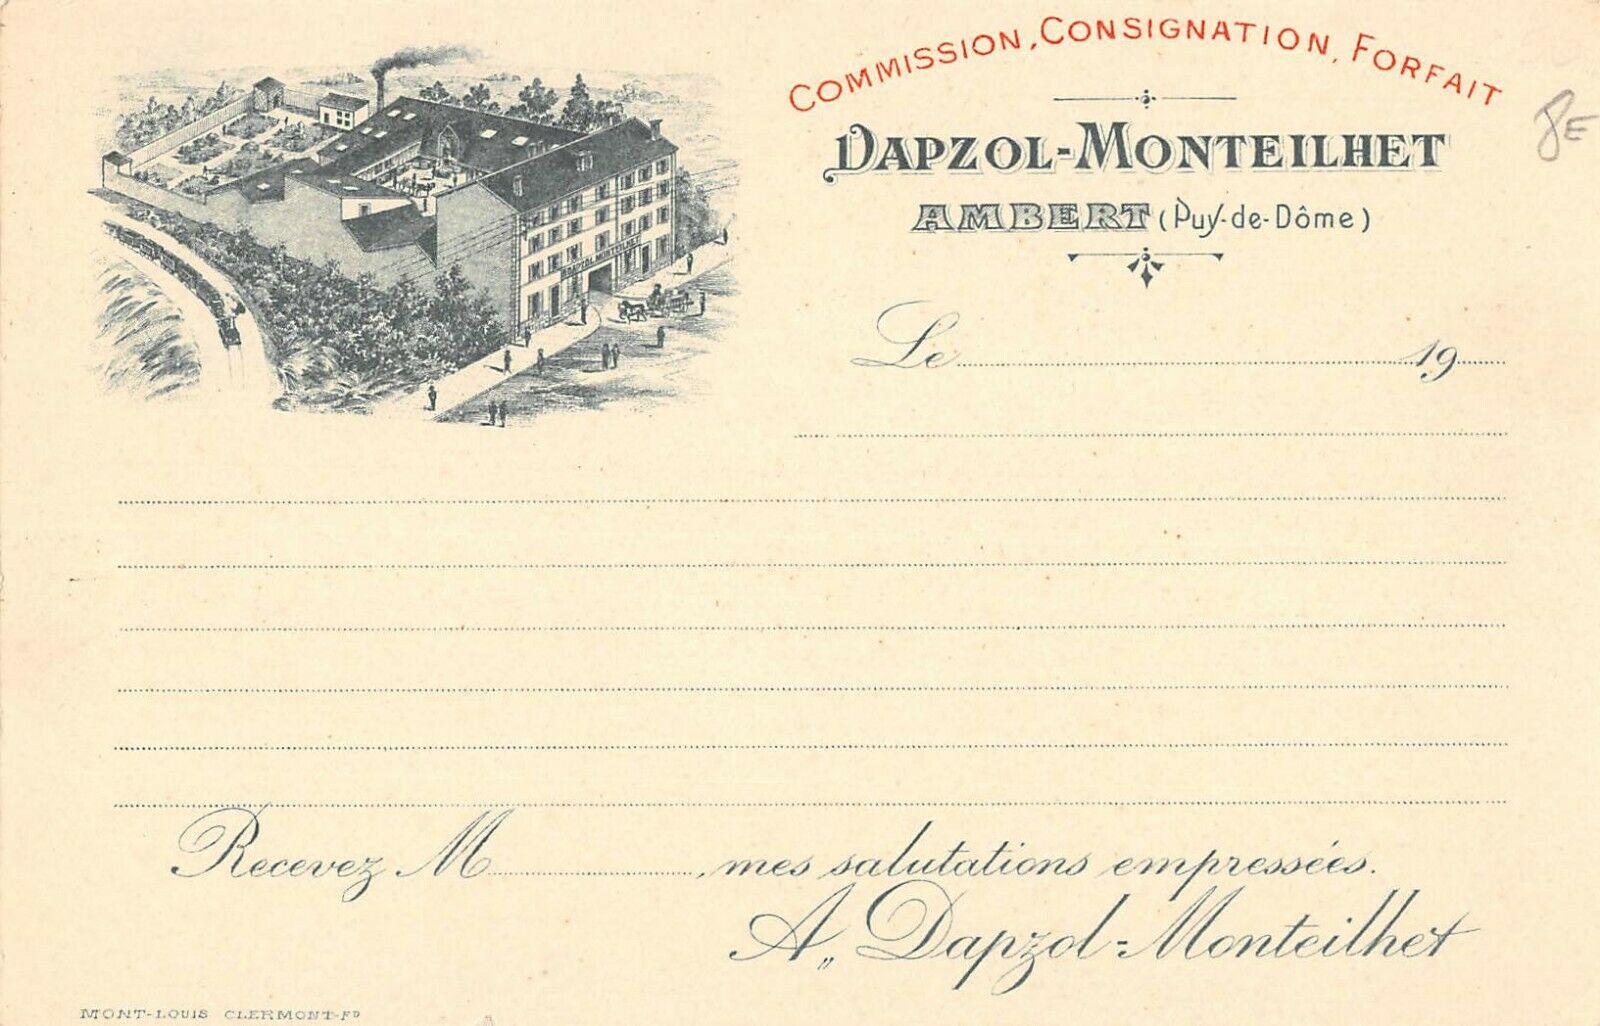 COMMISSION, CONSIGNATION, FORFAIT
8E
DAPZOL-MONTEILHET
AMBERT (Puy-de-Dôme)
DAPZOL MONTEILHET
Le 19
Recevez M , mes salutations empressées.
A„ Dapzol-Monteilhet
MONT-LOUIS CLERMONT-FD